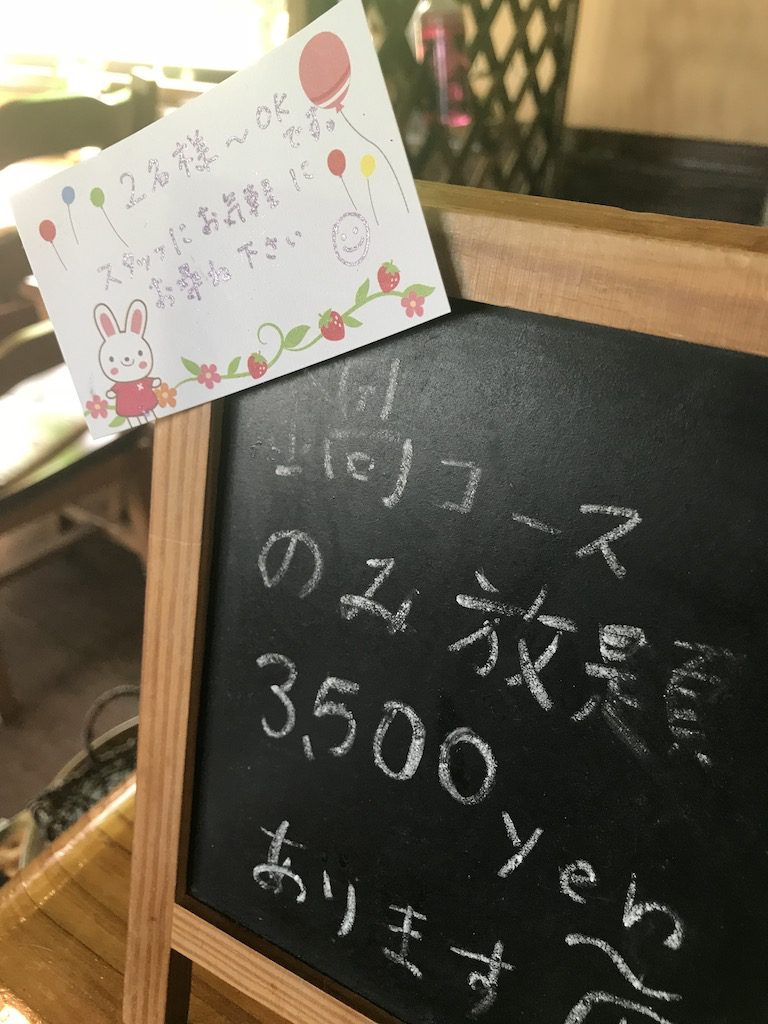 2名様〜OK
です。
スタッフにお気軽に
お尋ね下さい
コース
のみ放題
3,500
yen〜
あります